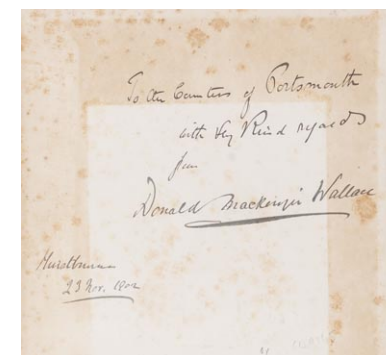 To the Countess of Portsmouth
with very Kind regards
from
Donald Mackenzie Wallace
Hurstbourne
23 Nov. 1902